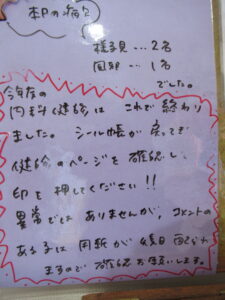 本日の病欠
様子見…2名
風邪…1名
でした。
今年度の
内科健診は これで終わり
ました。シール帳が戻ってき
健診のページを確認し、
印を押してください!!
異常では ありませんが、コメントの
ある方は 用紙が 後日 配られ
ますので 確認お願いします。